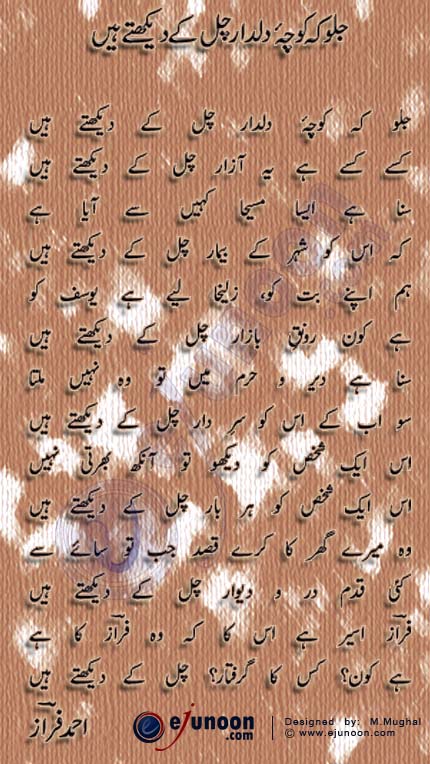 چلو کہ کوچۂ دلدار چل کے دیکھتے ہیں
چلو کہ کوچۂ دلدار چل کے دیکھتے ہیں
کسے کسے ہے یہ آزار چل کے دیکھتے ہیں
سنا ہے ایسا مسیحا کہیں سے آیا ہے
کہ اس کو شہر کے بیمار چل کے دیکھتے ہیں
ہم اپنے بت کو، زلیخا لیے ہے یوسف کو
ہے کون رونقِ بازار چل کے دیکھتے ہیں
سنا ہے دیر و حرم میں تو وہ نہیں ملتا
سو اب کے اس کو سرِ دار چل کے دیکھتے ہیں
اس ایک شخص کو دیکھو تو آنکھ بھرتی نہیں
اس ایک شخص کو ہر بار چل کے دیکھتے ہیں
وہ میرے گھر کا کرے قصد جب تو سائے سے
کئی قدم در و دیوار چل کے دیکھتے ہیں
فراؔز اسیر ہے اس کا کہ وہ فراؔز کا ہے
ہے کون؟ کس کا گرفتار؟ چل کے دیکھتے ہیں
احمد فراؔز
ejunoon.com
Designed by: M.Mughal
© www.ejunoon.com